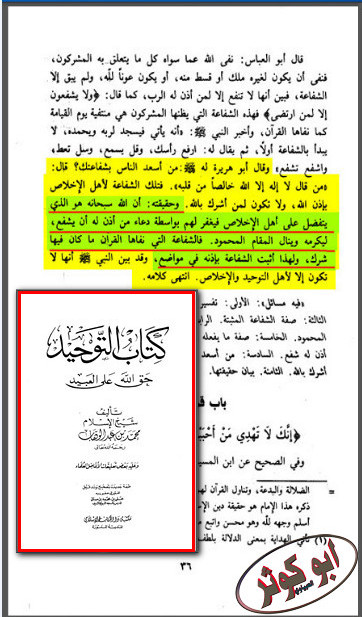 قال أبو العباس: نفى الله عما سواه كل ما يتعلق به المشركون،
فنفى أن يكون لغيره ملك أو قسط منه، أو يكون عوناً لله، ولم يبق إلا
الشفاعة، فبين أنها لا تنفع إلا لمن أذن له الرب، كما قال: ﴿ولا يشفعون
إلا لمن ارتضى﴾ فهذه الشفاعة التي يظنها المشركون هي منتفية يوم القيامة
كما نفاها القرآن، وأخبر النبي ﷺ: «أنه يأتي فيسجد لربه ويحمده، لا
يبدأ بالشفاعة أولاً، ثم يقال له: ارفع رأسك، وقل يسمع، وسل تعط،
واشفع تشفع» وقال أبو هريرة له ﷺ: من أسعد الناس بشفاعتك؟ قال:
«من قال لا إله إلا الله خالصاً من قلبه». فتلك الشفاعة لأهل الإخلاص
بإذن الله، ولا تكون لمن أشرك بالله. وحقيقته: أن الله سبحانه هو الذي
يتفضل على أهل الإخلاص فيغفر لهم بواسطة دعاء من أذن له أن يشفع،
ليكرمه وينال المقام المحمود. فالشفاعة التي نفاها القرآن ما كان فيها
شرك، ولهذا أثبت الشفاعة بإذنه في مواضع، وقد بين النبي ﷺ أنها لا
تكون إلا لأهل التوحيد والإخلاص. انتهى كلامه.
«فيه مسائل»: الأولى: تفسير
الثالثة: صفة الشفاعة المثبتة. الرابعة
المحمود. الخامسة: صفة ما يفعله
أذن له شفع. السادسة: من أسعد
أشرك بالله. الثامنة. بيان حقيقتها.
باب
﴿إنك لا تهدي من أحببت
وفي الصحيح عن ابن المسيب
= الضلالة والبدعة، وتناول القرآن
ذكره هذا الإمام هو حقيقة دين
أسلم وجهه لله وهو محسن واتبع
(١) تأتي الهداية بمعنى الدلالة
٣٦
كتاب التوحيد
حق الله على العبيد
تأليف
شيخ الإسلام
محمد بن عبد الوهاب
رحمه الله تعالى
أبو كوثر